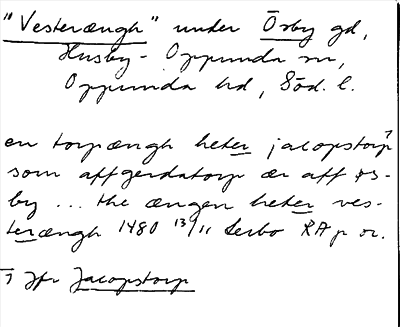 "Vesterængh" under Ösby gd,
Husby-Oppunda sn,
Oppunda hd, Söd. l.
en torpængh heter jacopstorp ¹
som affgerdatorp ær aff øs-
by ... the ængen heter ves-
terængh 1480 13/11 Lerbo RAp or.
¹ Jfr Jacopstorp